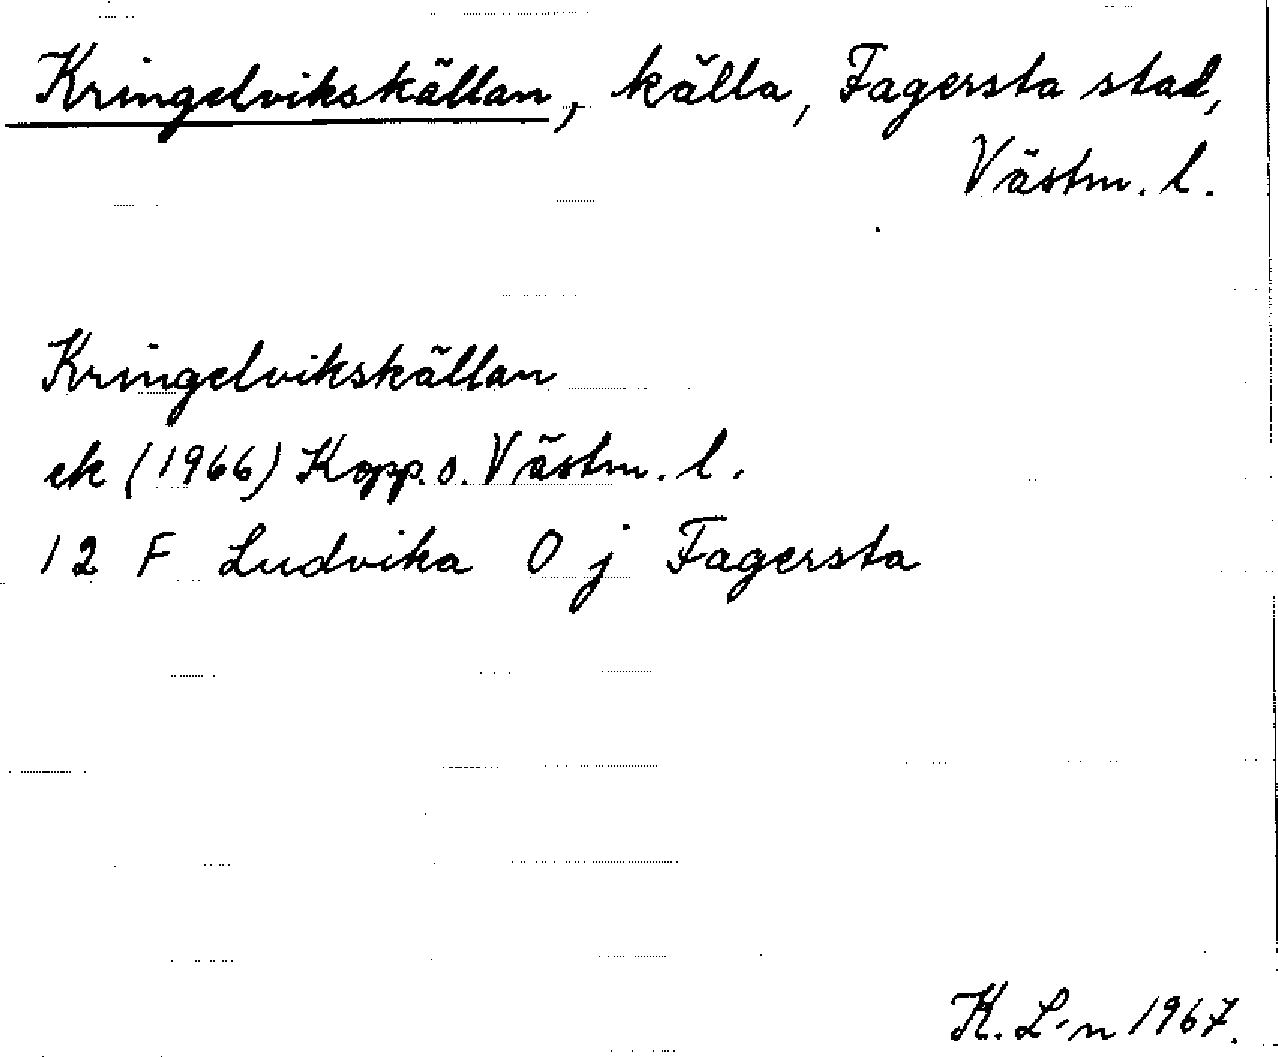 Kringelvikskällan, källa, Fagersta stad,
Västm. l.
Kringelvikskällan
ek (1966) Kopp. o. Västm. l.
12 F Ludvika O j Fagersta
K. L-n 1967.